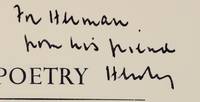 For Herman
from his friend
POETRY Henry